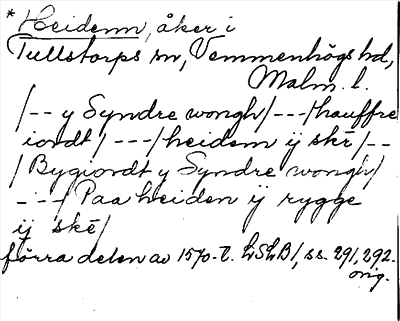 * Heidenn, åker i
Tullstorps sn, Vemmenhögs hd,
Malm. l.
/-- y Syndre wongh/---/hauffre
iordt/---/heidem ij skē/--
/Bygiordt y Syndre wongh/
---/Paa heiden ij rygge
ij skē/
förra delen av 1570-t. LSLB1, ss. 291, 292.
orig.